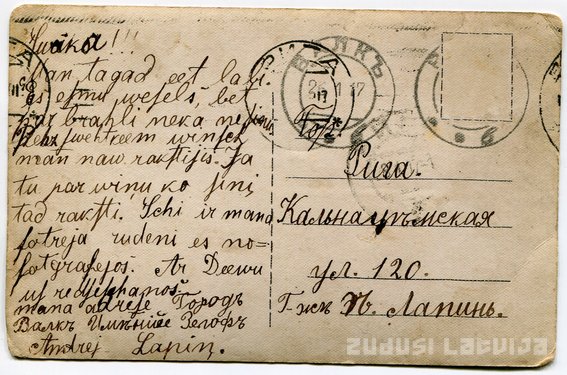 !!!
Man tagad eet labi
es esmu wesels, bet
par brahli neka ne sinu
Pehz swehtkeem winsch
man naw rakstijis. Ja
tu par wiņu ko sini
tad raksti. Schi ir mana
fotreja rudeni es no=
fotgrafejos. Ar Deewu
uz redseschanos.
mana adrese Городъ
Валкъ
Andrej Lapiņ.
РИГА
ВАЛКЪ
2 1 17
Рига.
Кальнацѣмская
ул. 120.
Г-жѣ П. Лапинь.
ZUDUSI LATVIJA